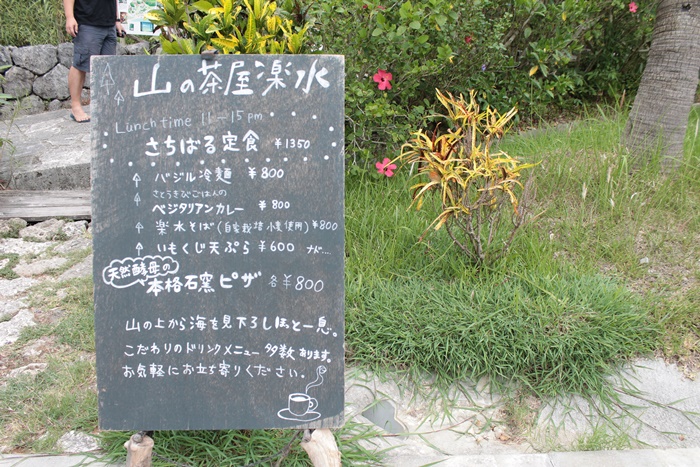 山の茶屋楽水
Lunch time 11-15pm
さちばる定食 ¥1350
バジル冷麺 ¥800
さとうきびごはんの
ベジタリアンカレー ¥800
楽水そば(自家栽培小麦使用)¥800
いもくじ天ぷら ¥600 など…
天然酵母の
本格石窯ピザ 各¥800
山の上から海を見下ろしほっと一息。
こだわりのドリンクメニュー多数あります。
お気軽にお立ち寄りください。